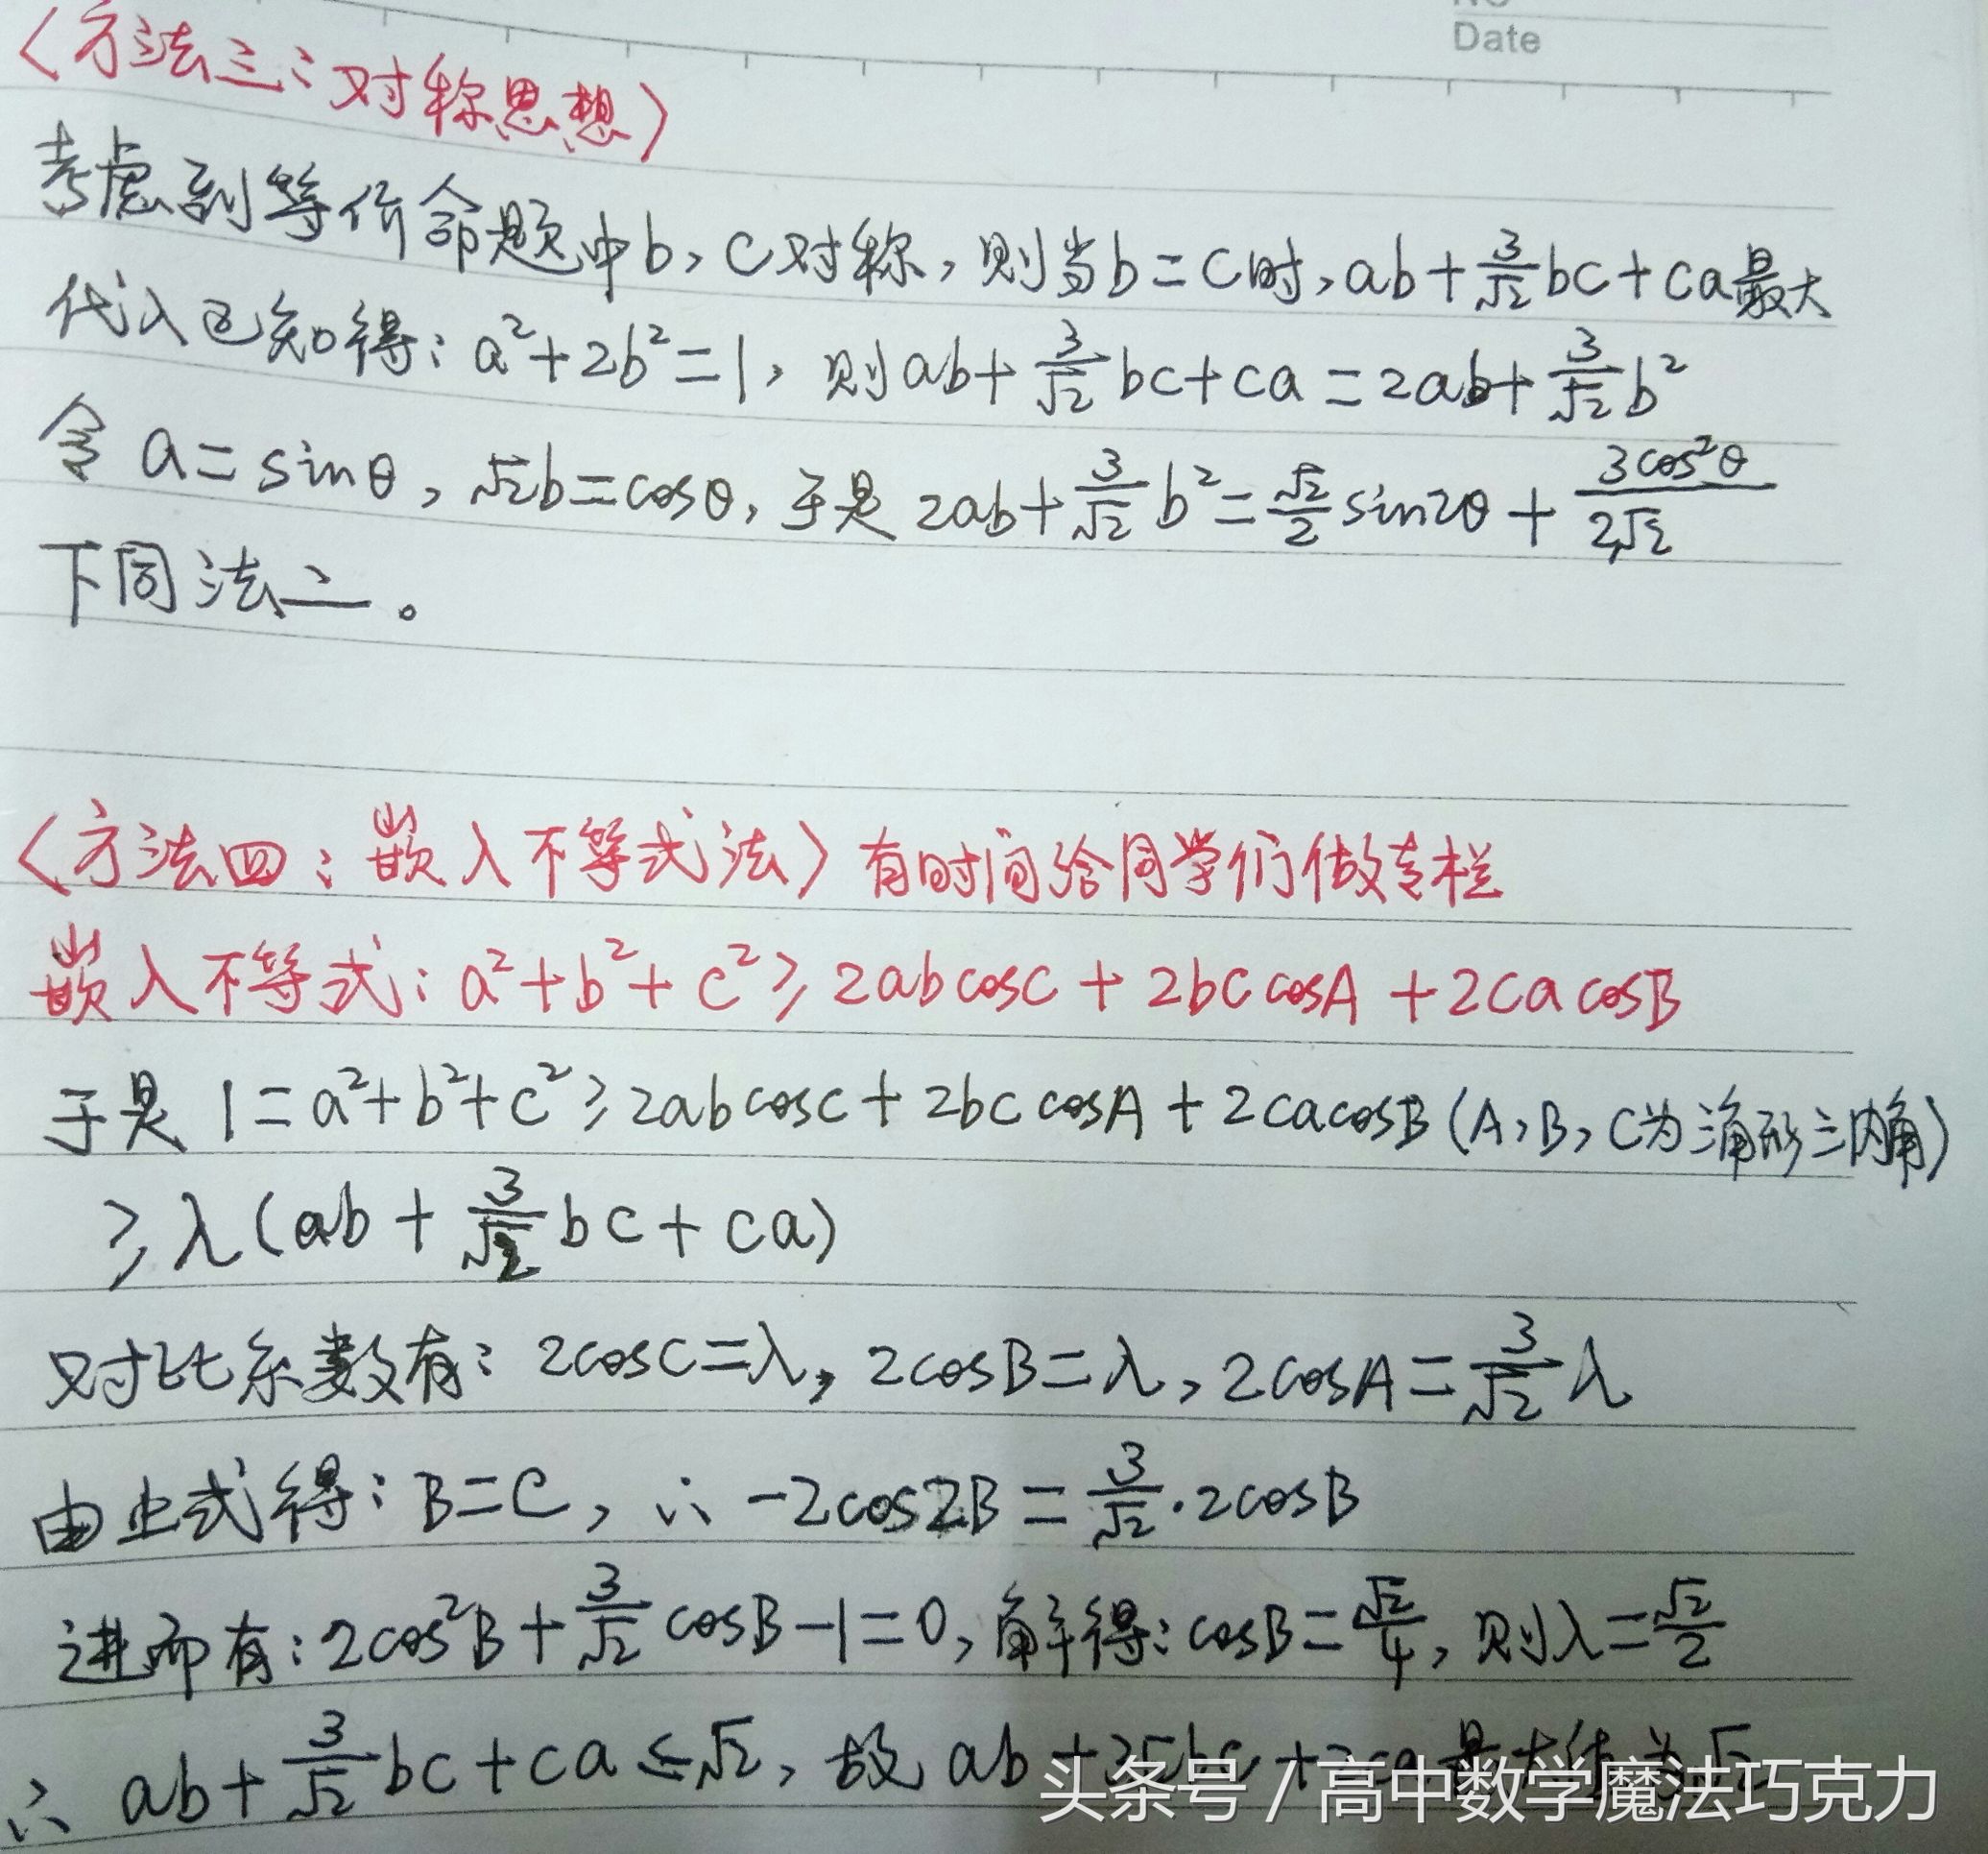 Date
〈方法三:对称思想〉
考虑到等价命题中b,c对称,则当b=c时,ab+3/√2bc+ca最大
代入已知得:a²+2b²=1,则ab+3/√2bc+ca=2ab+3/√2b²
令a=sinθ,√2b=cosθ,于是2ab+3/√2b²=√2/2sin2θ+3cos²θ/2√2
下同法二。
〈方法四:嵌入不等式法〉有时间给同学们做专栏
嵌入不等式:a²+b²+c²≥2abcosC+2bccosA+2cacosB
于是1=a²+b²+c²≥2abcosC+2bccosA+2cacosB(A,B,C为三角形三内角)
≥λ(ab+3/√2bc+ca)
对比系数有:2cosC=λ,2cosB=λ,2cosA=3/√2λ
由上式得:B=C,∴-2cos2B=3/√2·2cosB
进而有:2cos²B+3/√2cosB-1=0,解得:cosB=√2/4,则λ=√2/2
∴ab+3/√2bc+ca≤√2,故ab
头条号/高中数学魔法巧克力